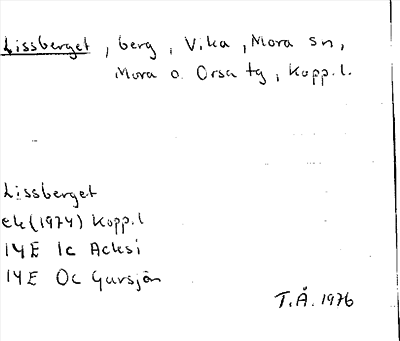 Lissberget, berg, Vika, Mora sn,
Mora o. Orsa tg, Kopp.l.
Lissberget
ek(1974) Kopp.l
14E 1c Acksi
14E 0c Gursjön
T.Å. 1976